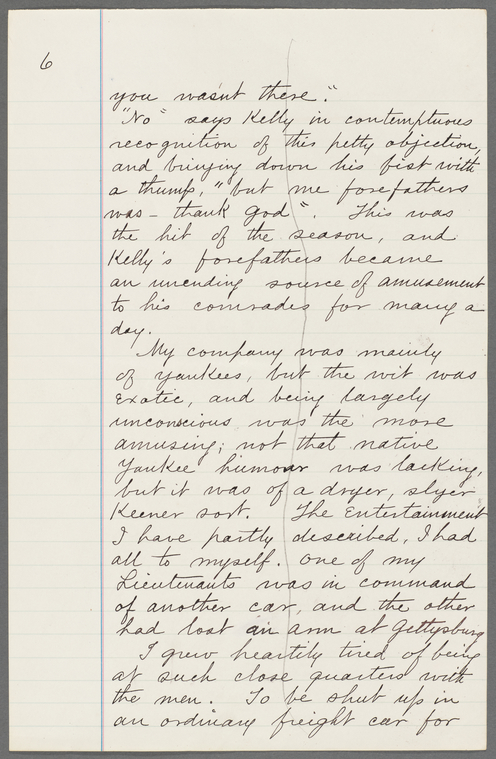 6
you wasn't there."
"No" says Kelly in contemptuous
recognition of this petty objection,
and bringing down his fist with
a thump, "but me forefathers
was - thank God". This was
the hit of the season, and
Kelly's forefathers became
an unending source of amusement
to his comrades for many a
day.
My company was mainly
of Yankees, but the wit was
Exotic, and being largely
unconscious was the more
amusing; not that native
Yankee humour was lacking,
but it was of a dryer, slyer
Keener sort. The Entertainment
I have partly described, I had
all to myself. One of my
Lieutenants was in command
of another car, and the other
had lost an arm at Gettysburg
I grew heartily tired of being
at such close quarters with
the men. To be shut up in
an ordinary freight car for